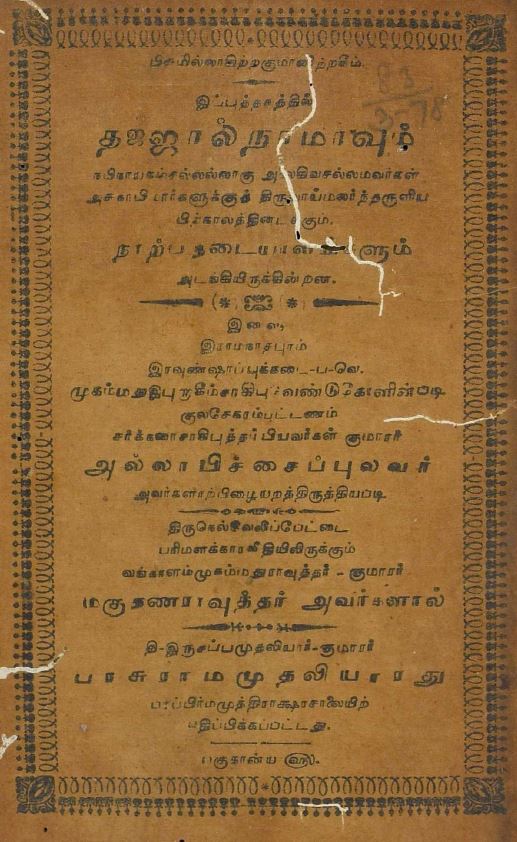 பிசுமில்லாகிற்றகுமானிற்றகீம்.
83
3 78
இப்புத்தகத்தில்
தஜ்ஜால்நாமாவும்
நபிநாயகம்சல்லல்லாகு அலகிவசல்லமவர்கள்
அசகாபிமார்களுக்குத் திருவாய்மலர்ந்தருளிய
பிற்காலத்தினடக்கும்.
நாற்பதடையாளங்களும்
அடங்கியிருக்கின்றன.
இவை,
இராமநாதபுரம்
இரவுண்ஷாப்புக்கடை-ப-வெ.
முகம்மதுஇபுறாகீம்சாகிபு வேண்டுகோளின்படி
குலசேகரம்பட்டணம்
சர்க்கரைசாகிபுத்தம்பியவர்கள் குமாரர்
அல்லாபிச்சைப்புலவர்
அவர்களாற்பிழையறத்திருத்தியபடி
திருநெல்வேலிப்பேட்டை
பரிமளக்காரவீதியிலிருக்கும்
வங்காளம்முகம்மதுராவுத்தர் - குமாரர்
மகுதணராவுத்தர் அவர்களால்
தி-இருசப்பமுதலியார்-குமாரர்
பரசுராமமுதலியாரது
பரப்பிர்மமுத்திராக்ஷரசாலையிற்
பதிப்பிக்கப்பட்டது.
வெகுதான்ய ௵.